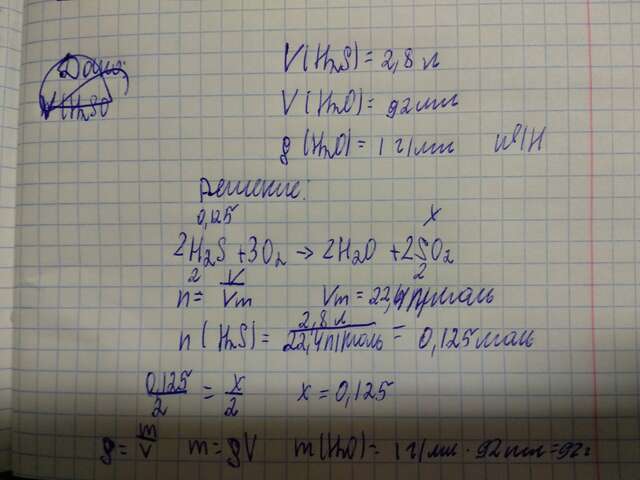 Дано:
V(H₂S) = 2,8 л
V(H₂O) = 92 мл
ρ(H₂O) = 1 г/мл
Решение:
0,125 x
2H₂S + 3O₂ → 2H₂O + 2SO₂
2 2
n = V/Vm Vm = 22,4 л/моль
n(H₂S) = 2,8 л/22,4 л/моль = 0,125 моль
0,125/2 = x/2 x = 0,125
ρ = m/V m = ρV m(H₂O) = 1 г/мл · 92 мл = 92 г